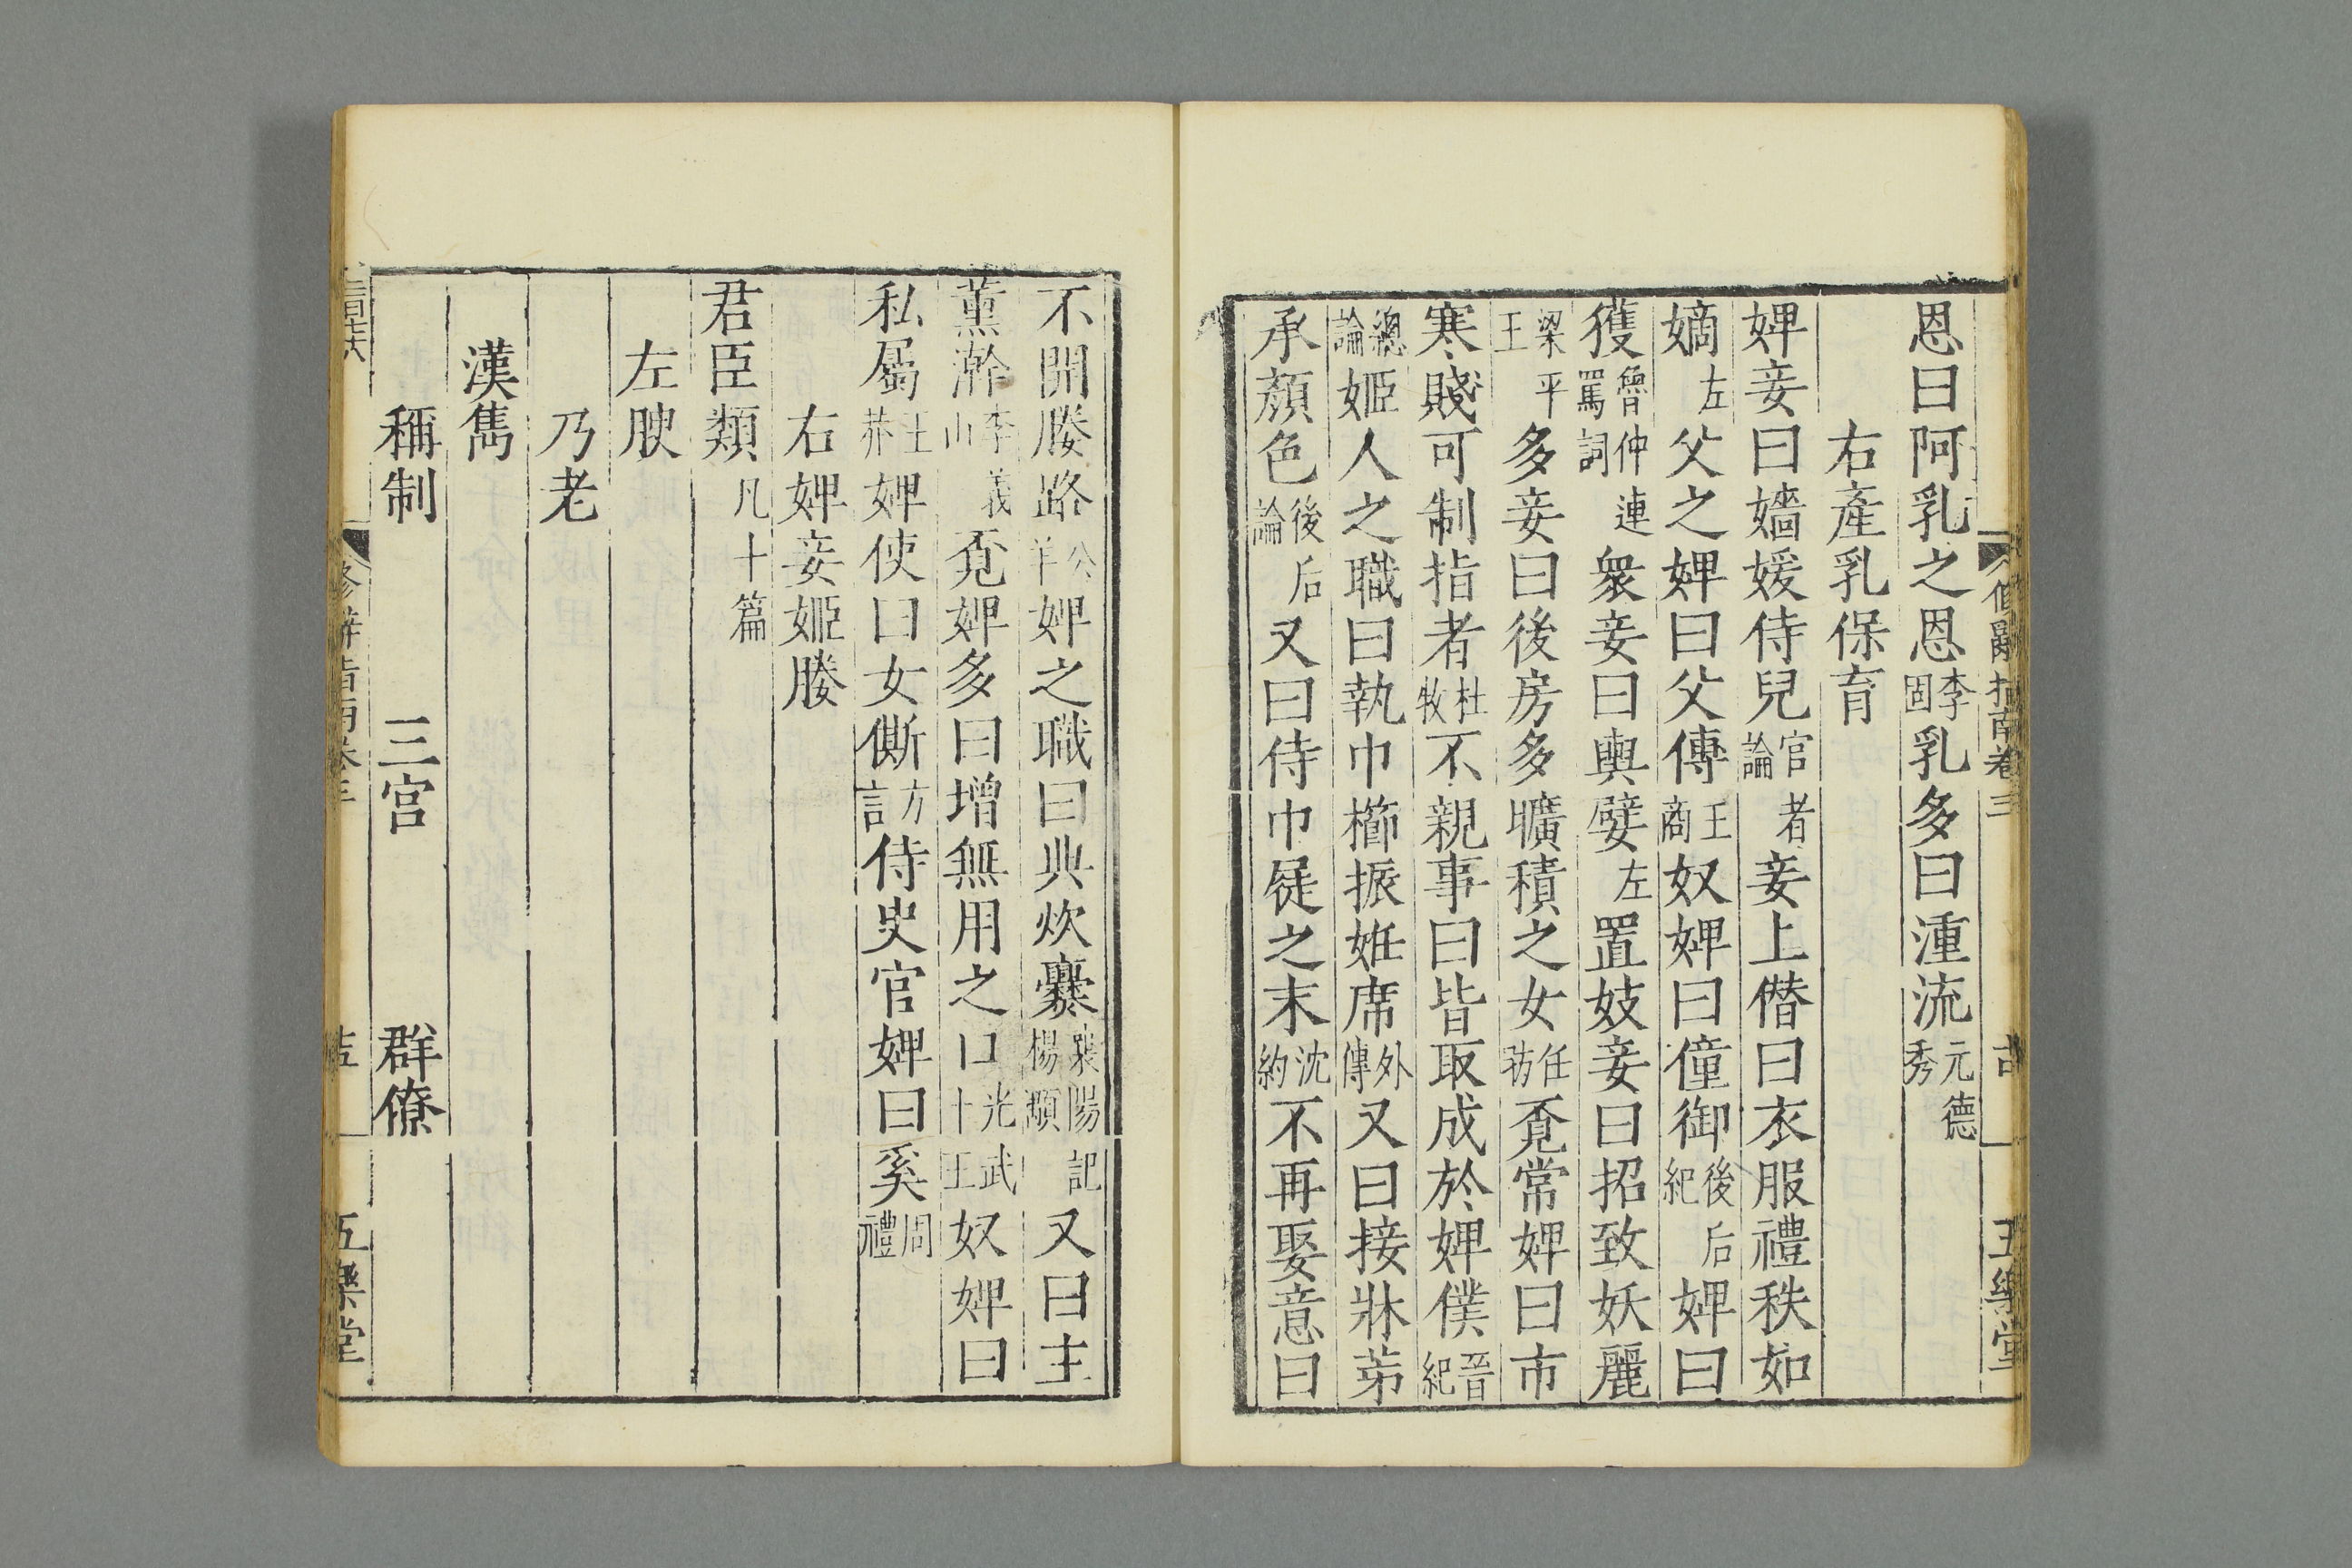 恩曰阿乳之恩李固乳多曰湩流元德秀
右產乳保育
婢妾曰嬙媛侍兒官者論妾上僭曰衣服禮秩如
嫡左父之婢曰父傳王商奴婢曰僮御後后紀婢曰
獲魯仲連罵詞衆妾曰輿嬖左置妓妾曰招致妖麗
梁平王多妾曰後房多曠積之女任昉覓常婢曰市
寒賤可制指者杜牧不親事曰皆取成於婢僕晉紀
總論姬人之職曰執巾櫛振姙席外傳又曰接牀笫
承顏色後后論又曰侍巾屣之末沈約不再娶意曰
不開媵路公羊婢之職曰典炊爨襄陽記楊顒又曰主
薰澣李義山覓婢多曰增無用之口光武十王奴婢曰
私屬王莽婢使曰女傂方言侍史官婢曰奚周禮
右婢妾姬媵
君臣類凡十篇
左腴
乃老
漢雋
稱制 三宮 群僚
修辭指南卷三
五樂堂